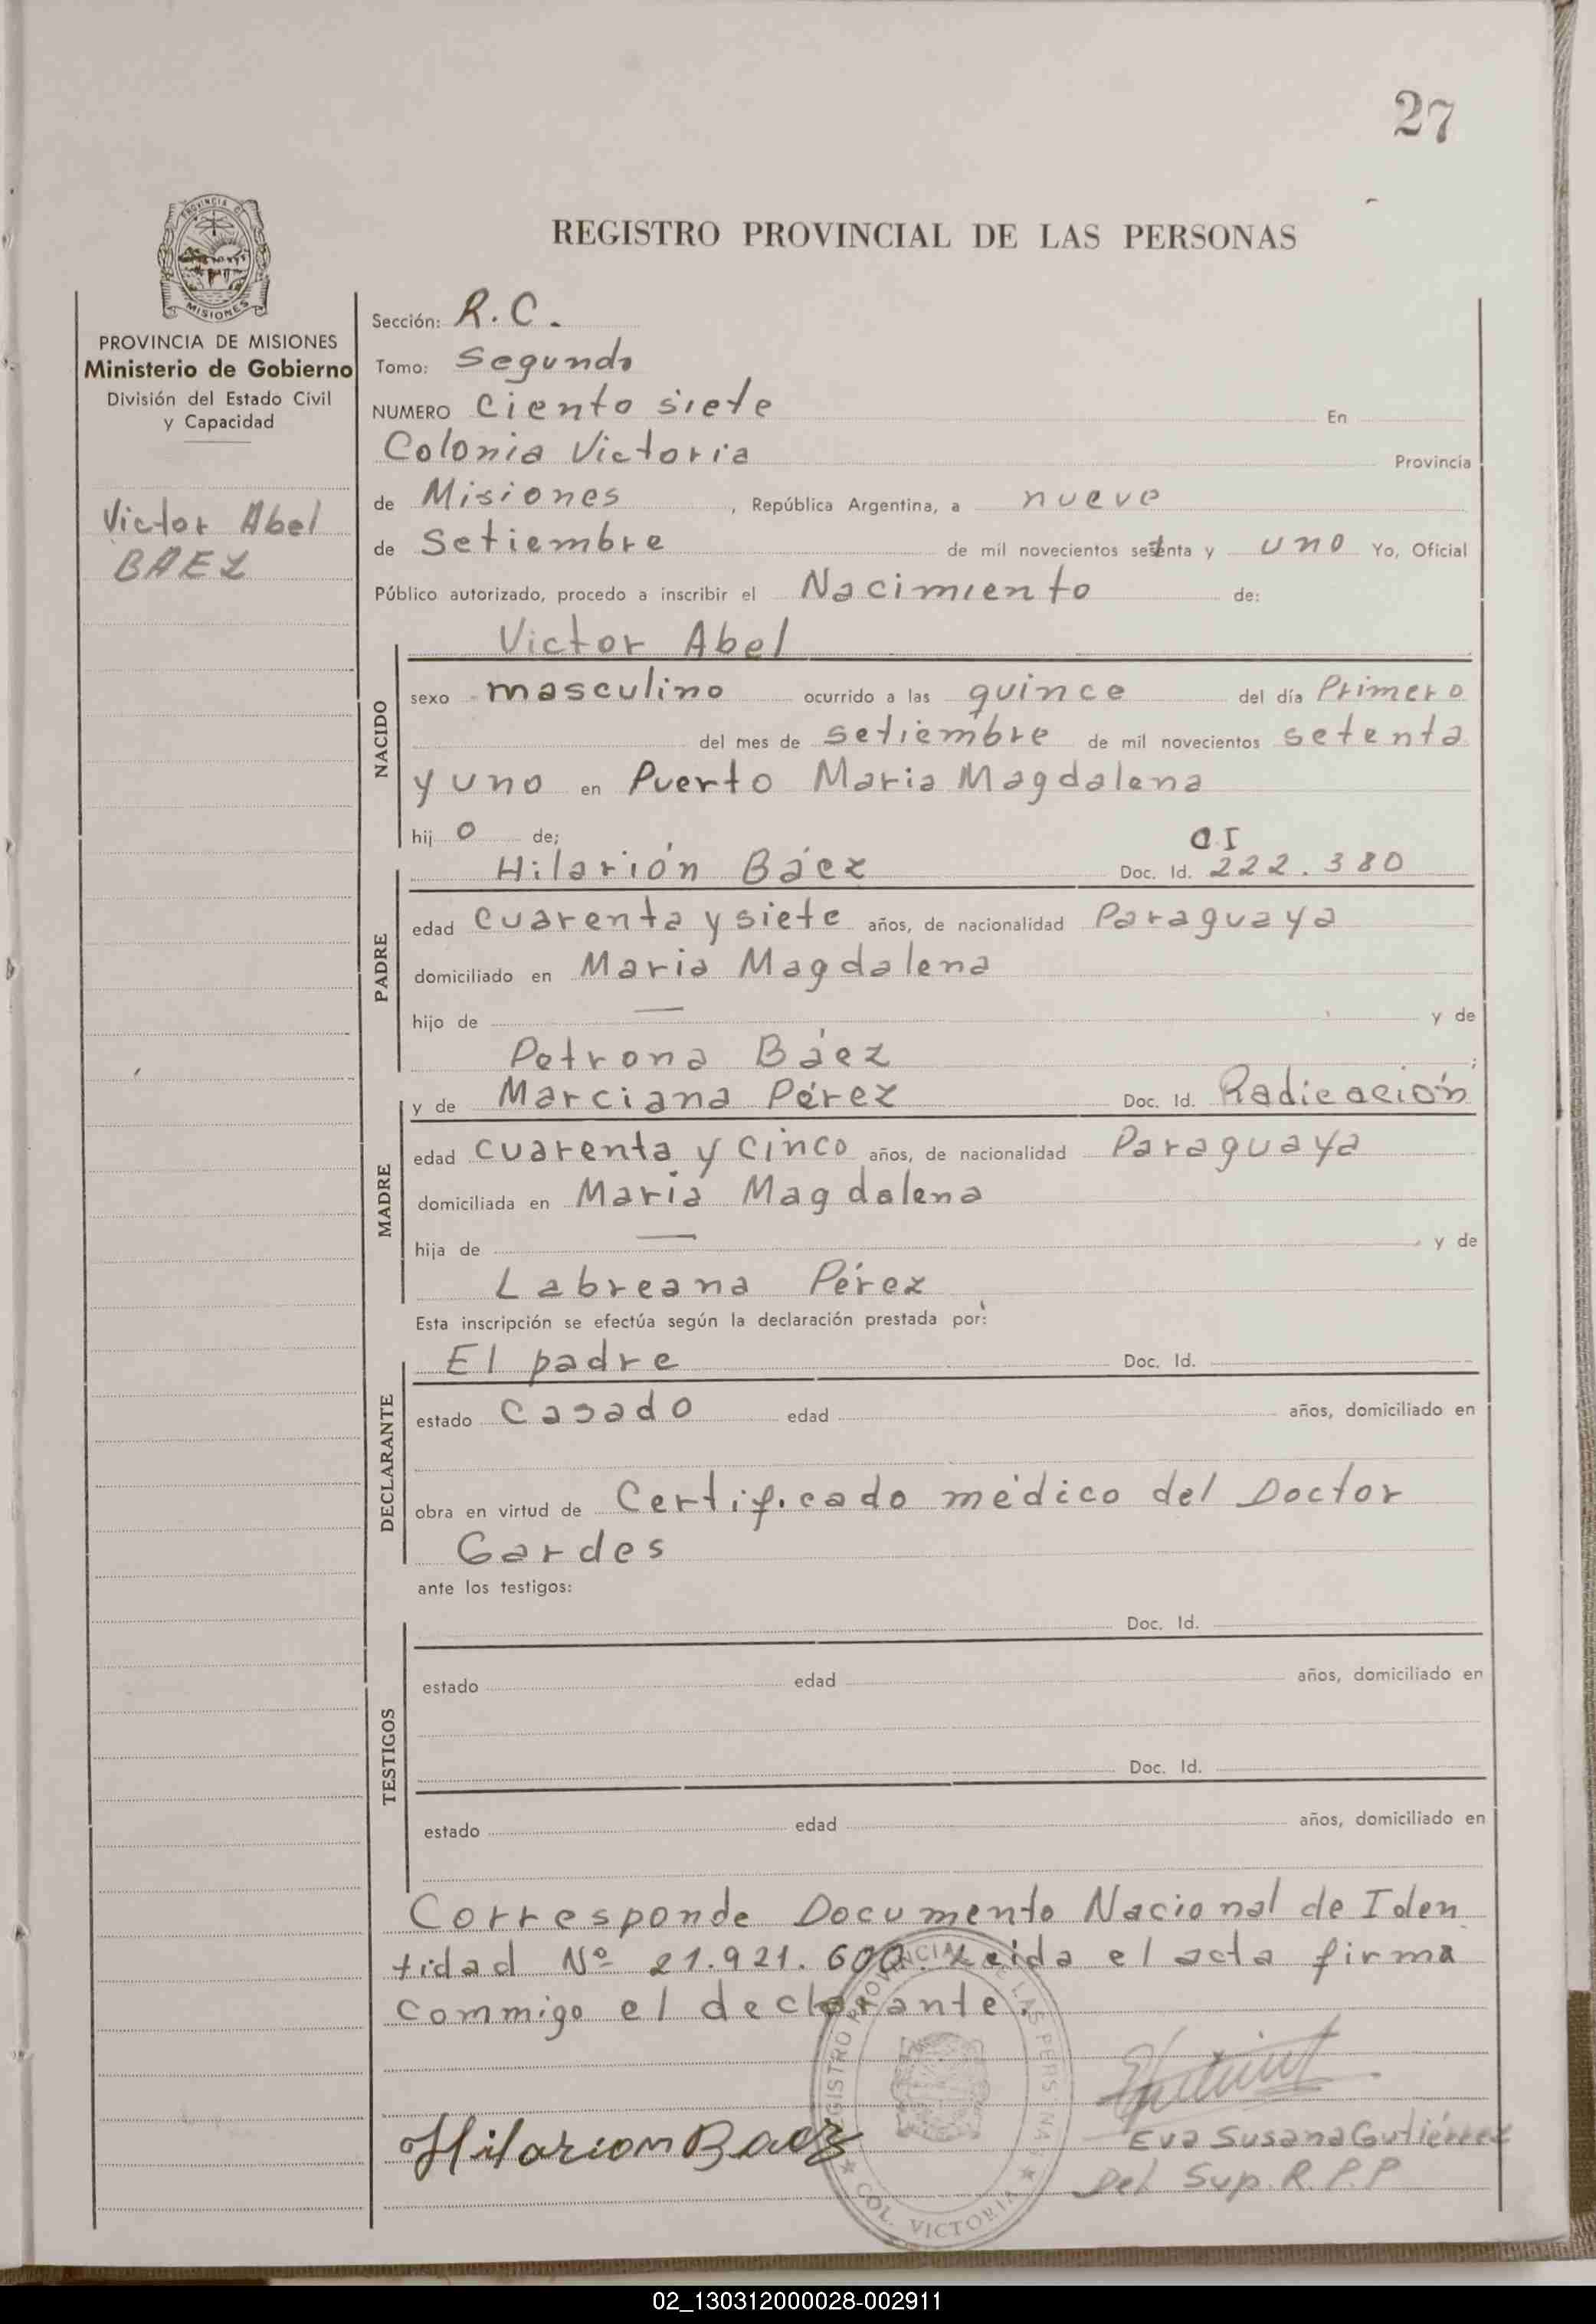 27
PROVINCIA DE
MISIONES
REGISTRO PROVINCIAL DE LAS PERSONAS
PROVINCIA DE MISIONES
Ministerio de Gobierno
División del Estado Civil
y Capacidad
Victor Abel
BAEZ
Sección: R.C.
Tomo: Segundo
NUMERO Ciento siete En
Colonia Victoria Provincia
de Misiones, República Argentina, a nueve
de Setiembre de mil novecientos setenta y uno Yo, Oficial
Público autorizado, procedo a inscribir el Nacimiento de:
NACIDO
Victor Abel
sexo masculino ocurrido a las quince del día Primero
del mes de setiembre de mil novecientos setenta
y uno en Puerto Maria Magdalena
hijo de;
PADRE
CI
Hilarión Báez Doc. Id. 222.380
edad cuarenta y siete años, de nacionalidad Paraguaya
domiciliado en Maria Magdalena
hijo de — y de
Petrona Báez;
MADRE
y de Marciana Pérez Doc. Id. Radicación
edad cuarenta y cinco años, de nacionalidad Paraguaya
domiciliada en Maria Magdalena
hija de — y de
Labreana Pérez
Esta inscripción se efectúa según la declaración prestada por:
DECLARANTE
El padre Doc. Id.
estado Casado edad años, domiciliado en
obra en virtud de Certificado médico del Doctor
Gardes
ante los testigos:
TESTIGOS
Doc. Id.
estado edad años, domiciliado en
Doc. Id.
estado edad años, domiciliado en
Corresponde Documento Nacional de Iden
tidad Nº 21.921.600. Leida el acta firma
commigo el declarante.
REGISTRO PROVINCIAL DE LAS PERSONAS
★ COL. VICTORIA ★
Hilarion Baez
Eva Susana Gutiérrez
Del Sup. R.P.P
02_130312000028-002911